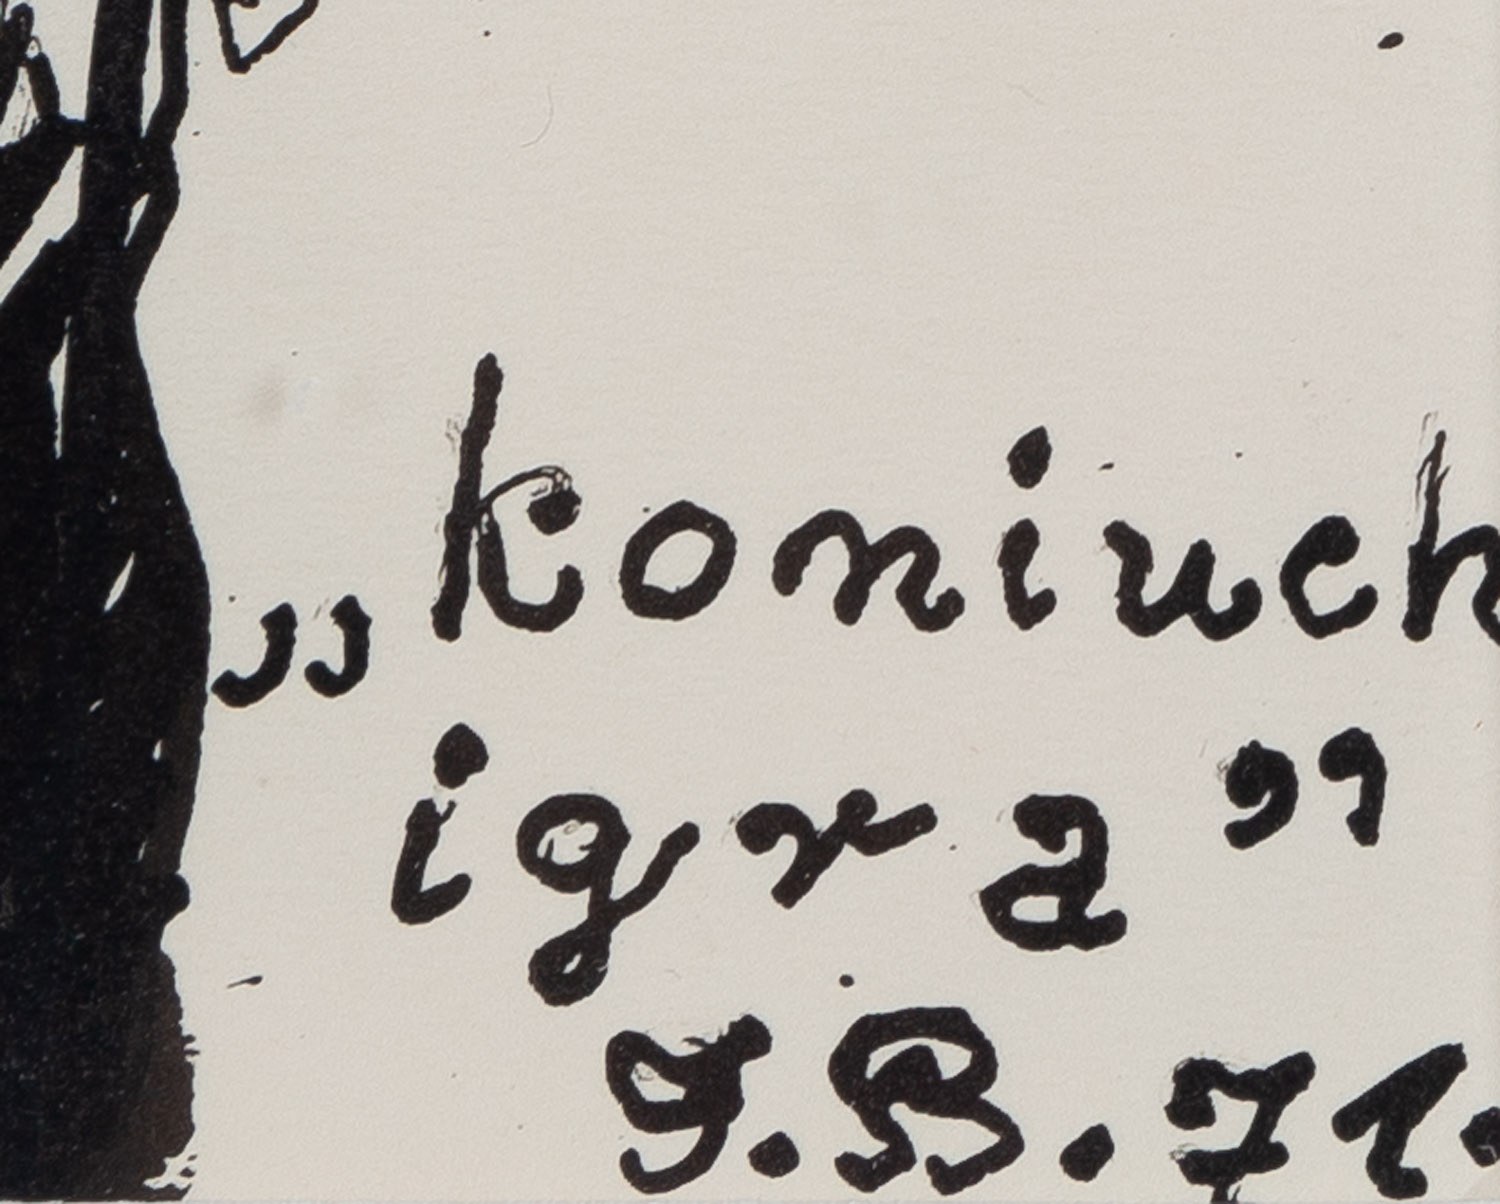 „koniuch
igra”
J.B.71.